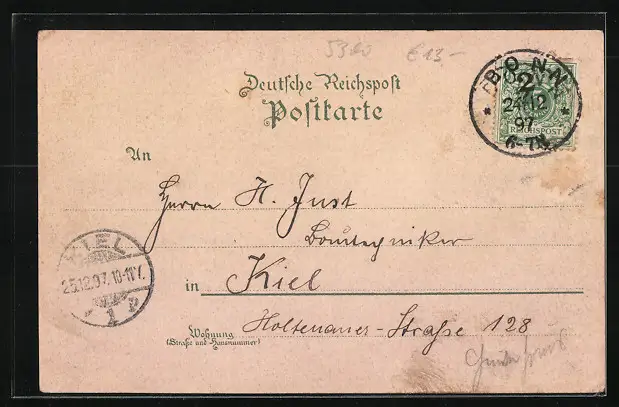 5380 €13,-
Deutsche Reichspost
Postkarte
BONN
2
24 12
97
6-7N
REICHSPOST
An
Herrn H. Just
Bautechniker
KIEL
25.12.97.10-11V.
1 P
in Kiel
Wohnung
(Straße und Hausnummer)
Holtenauer-Straße 128